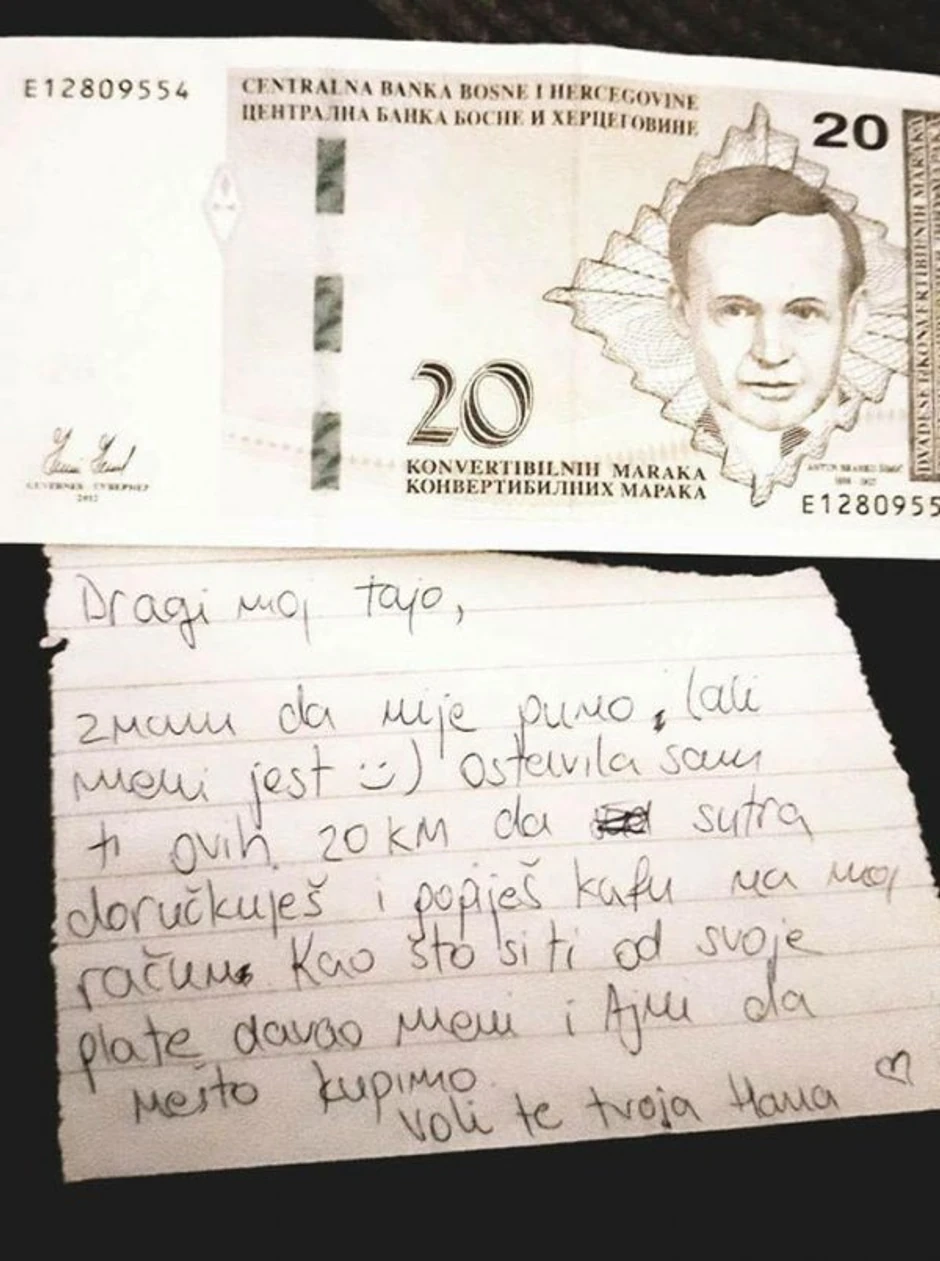 E12809554
CENTRALNA BANKA BOSNE I HERCEGOVINE
ЦЕНТРАЛНА БАНКА БОСНЕ И ХЕРЦЕГОВИНЕ
20
20
KONVERTIBILNIH MARAKA
КОНВЕРТИБИЛНИХ МАРАКА
GUVERNER ГУВЕРНЕР
2012
ANTUN BRANKO ŠIMIĆ
E1280955
DVADESET KONVERTIBILNIH MARAKA
Dragi moj tajo,
znam da nije puno, (ali
meni jest :)) Ostavila sam
ti ovih 20 KM da sutra
doručkuješ i popiješ kafu na moj
račun. Kao što si ti od svoje
plate davao meni i Ajni da
nešto kupimo.
Voli te tvoja Hana ♡